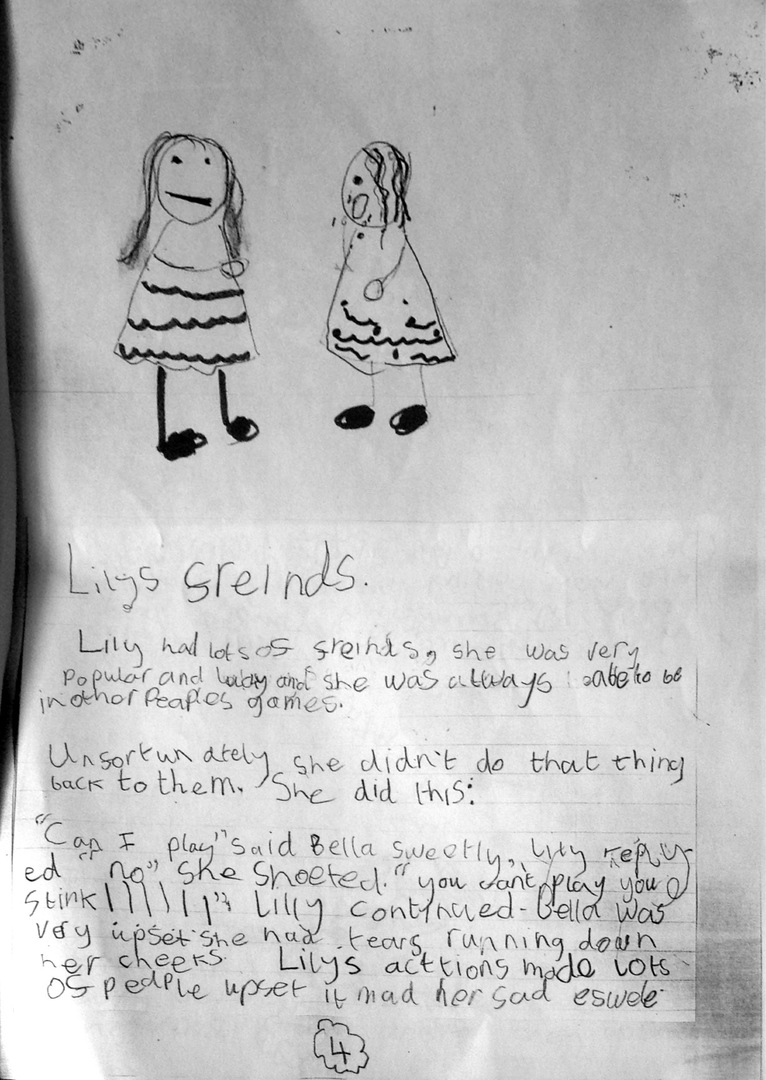 Lilys sreinds.
Lily had lots os sreinds, she was very
Popular and and she was always able to be
in other Peaples games.
Unsortunately she didn't do that thing
back to them. She did this:
"Can I play" said Bella sweetly, lily reply
ed "no" she shoeted. "you can't play you
Stink!!!!!!!" Lilly continued. Bella was
very upset she had tears running down
her cheeks. Lilys acttions made lots
os people upset it mad her sad
4